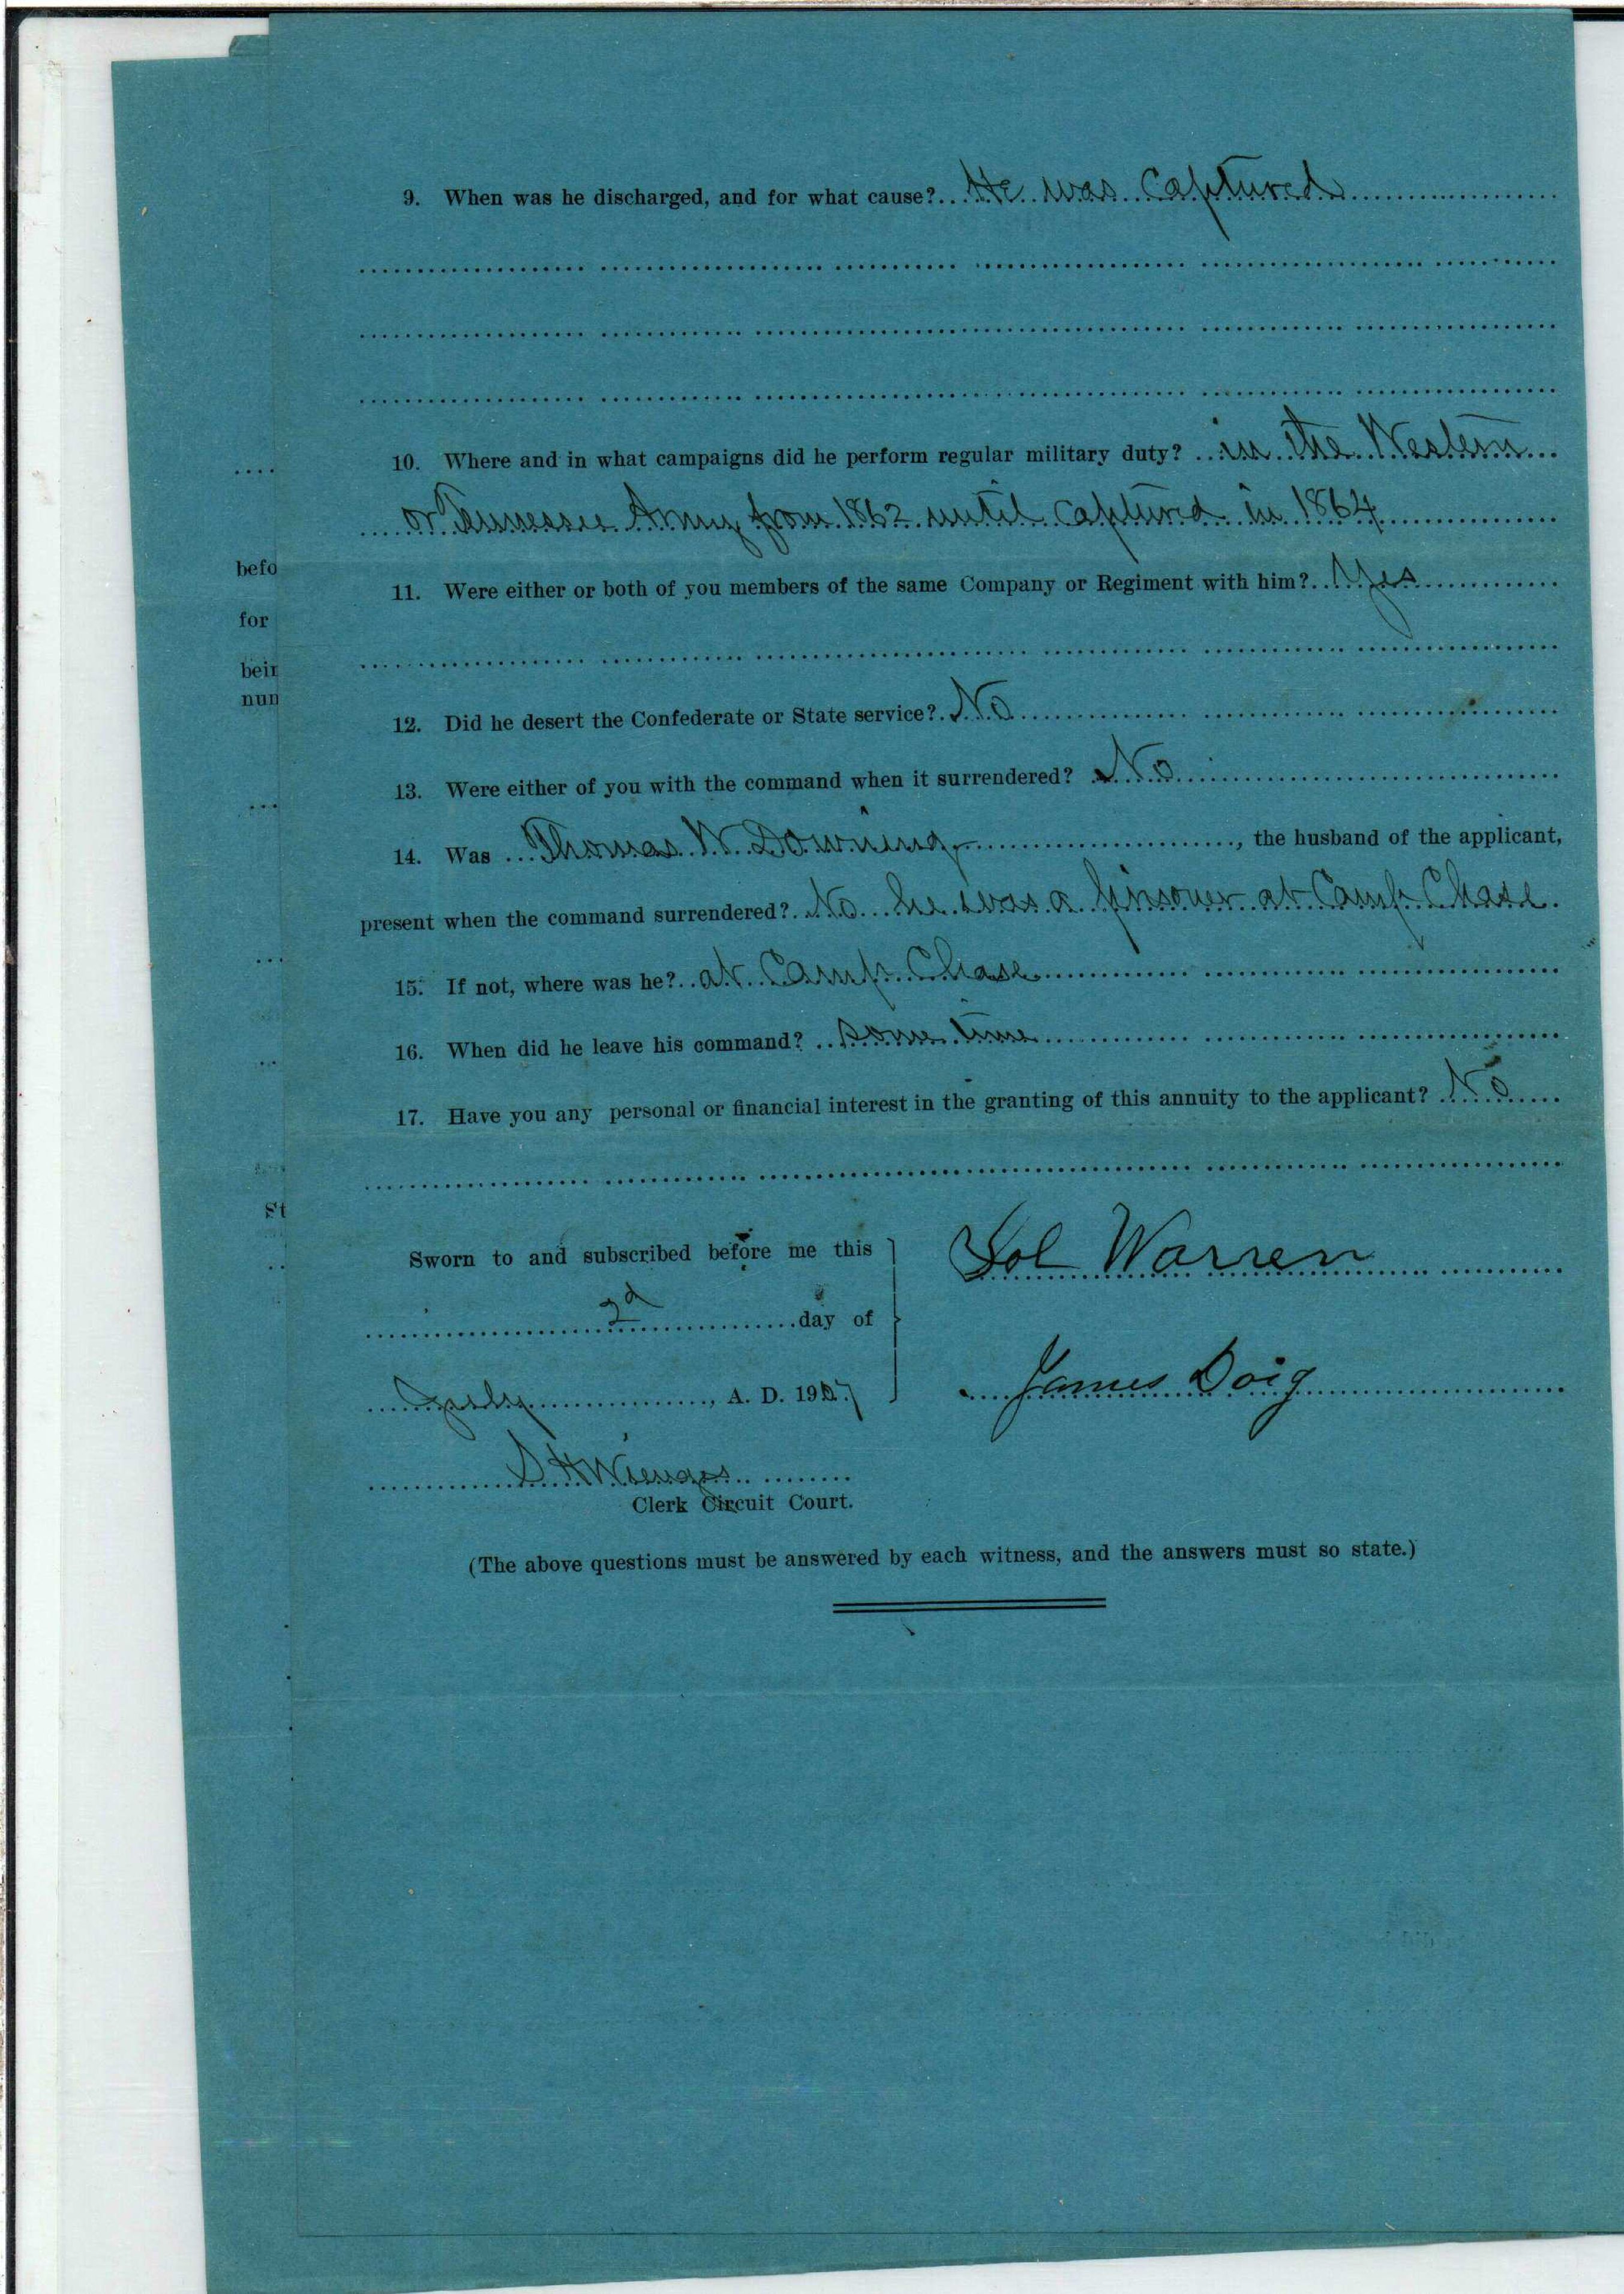 9. When was he discharged, and for what cause? He was Captured
10. Where and in what campaigns did he perform regular military duty? in the Western
or Tennessee Army from 1862 until captured in 1864
befo
11. Were either or both of you members of the same Company or Regiment with him? Yes
for
bein
num
12. Did he desert the Confederate or State service? No
13. Were either of you with the command when it surrendered? No
14. Was Thomas W. Downing, the husband of the applicant,
present when the command surrendered? No he was a prisoner at Camp Chase
15. If not, where was he? at Camp Chase
16. When did he leave his command? some time
17. Have you any personal or financial interest in the granting of this annuity to the applicant? No
St
Sworn to and subscribed before me this
Sol Warren
2d day of
July, A. D. 1907
James Doig
S H Wienges
Clerk Circuit Court.
(The above questions must be answered by each witness, and the answers must so state.)